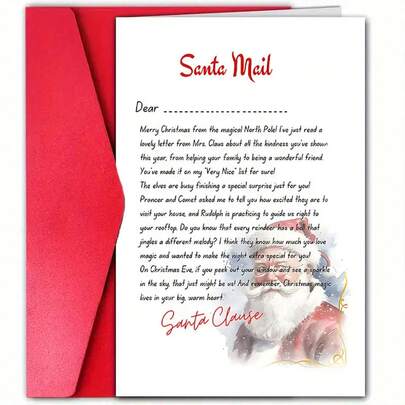 Santa Mail
Dear ________________________
Merry Christmas from the magical North Pole! I've just read a
lovely letter from Mrs. Claus about all the kindness you've shown
this year, from helping your family to being a wonderful friend.
You've made it on my "Very Nice" list for sure!
The elves are busy finishing a special surprise just for you!
Prancer and Comet asked me to tell you how excited they are to
visit your house, and Rudolph is practicing to guide us right to
your rooftop. Do you know that every reindeer has a bell that
jingles a different melody? I think they know how much you love
magic and wanted to make the night extra special for you!
On Christmas Eve, if you peek out your window and see a sparkle
in the sky, that just might be us! And remember, Christmas magic
lives in your big, warm heart.
Santa Clause